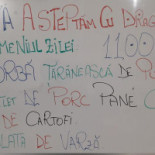 A AȘTEPTĂM CU DRAG
MENIUL ZILEI 1100
ORBĂ ȚĂRĂNEASCĂ DE
DE PORC PANE C
DE CARTOFI
LATĂ DE VARZĂ